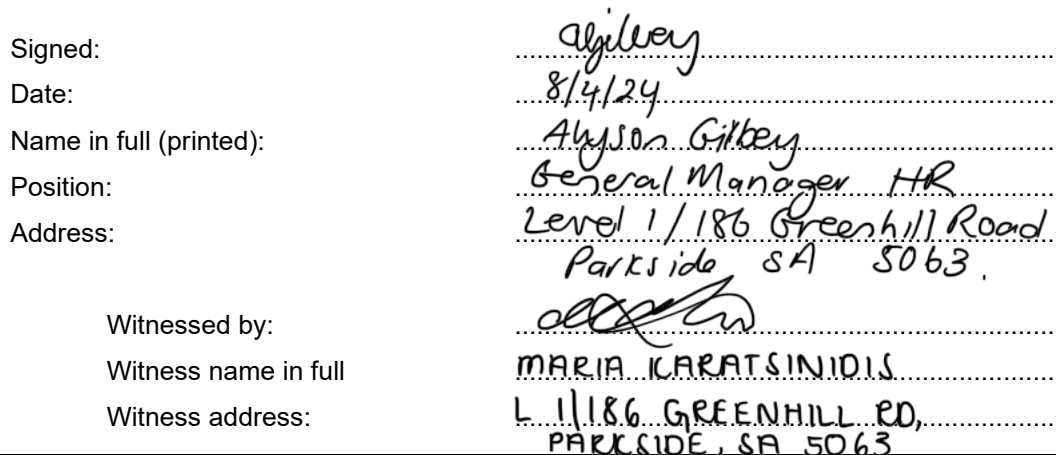 Signed: agilbey
Date: 8/4/24
Name in full (printed): Alyson Gilbey
Position: General Manager HR
Address: Level 1/186 Greenhill Road
Parkside SA 5063.
Witnessed by:
Witness name in full MARIA KARATSINIDIS
Witness address: L 1/186 GREENHILL RD,
PARKSIDE, SA 5063